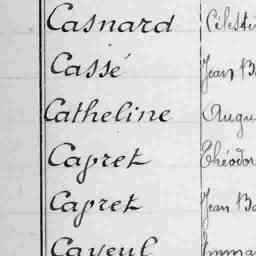 Casnard Célesti
Cassé Jean Ba
Catheline Augu
Capret Théodor
Capret Jean Ba
Cayeul Emma